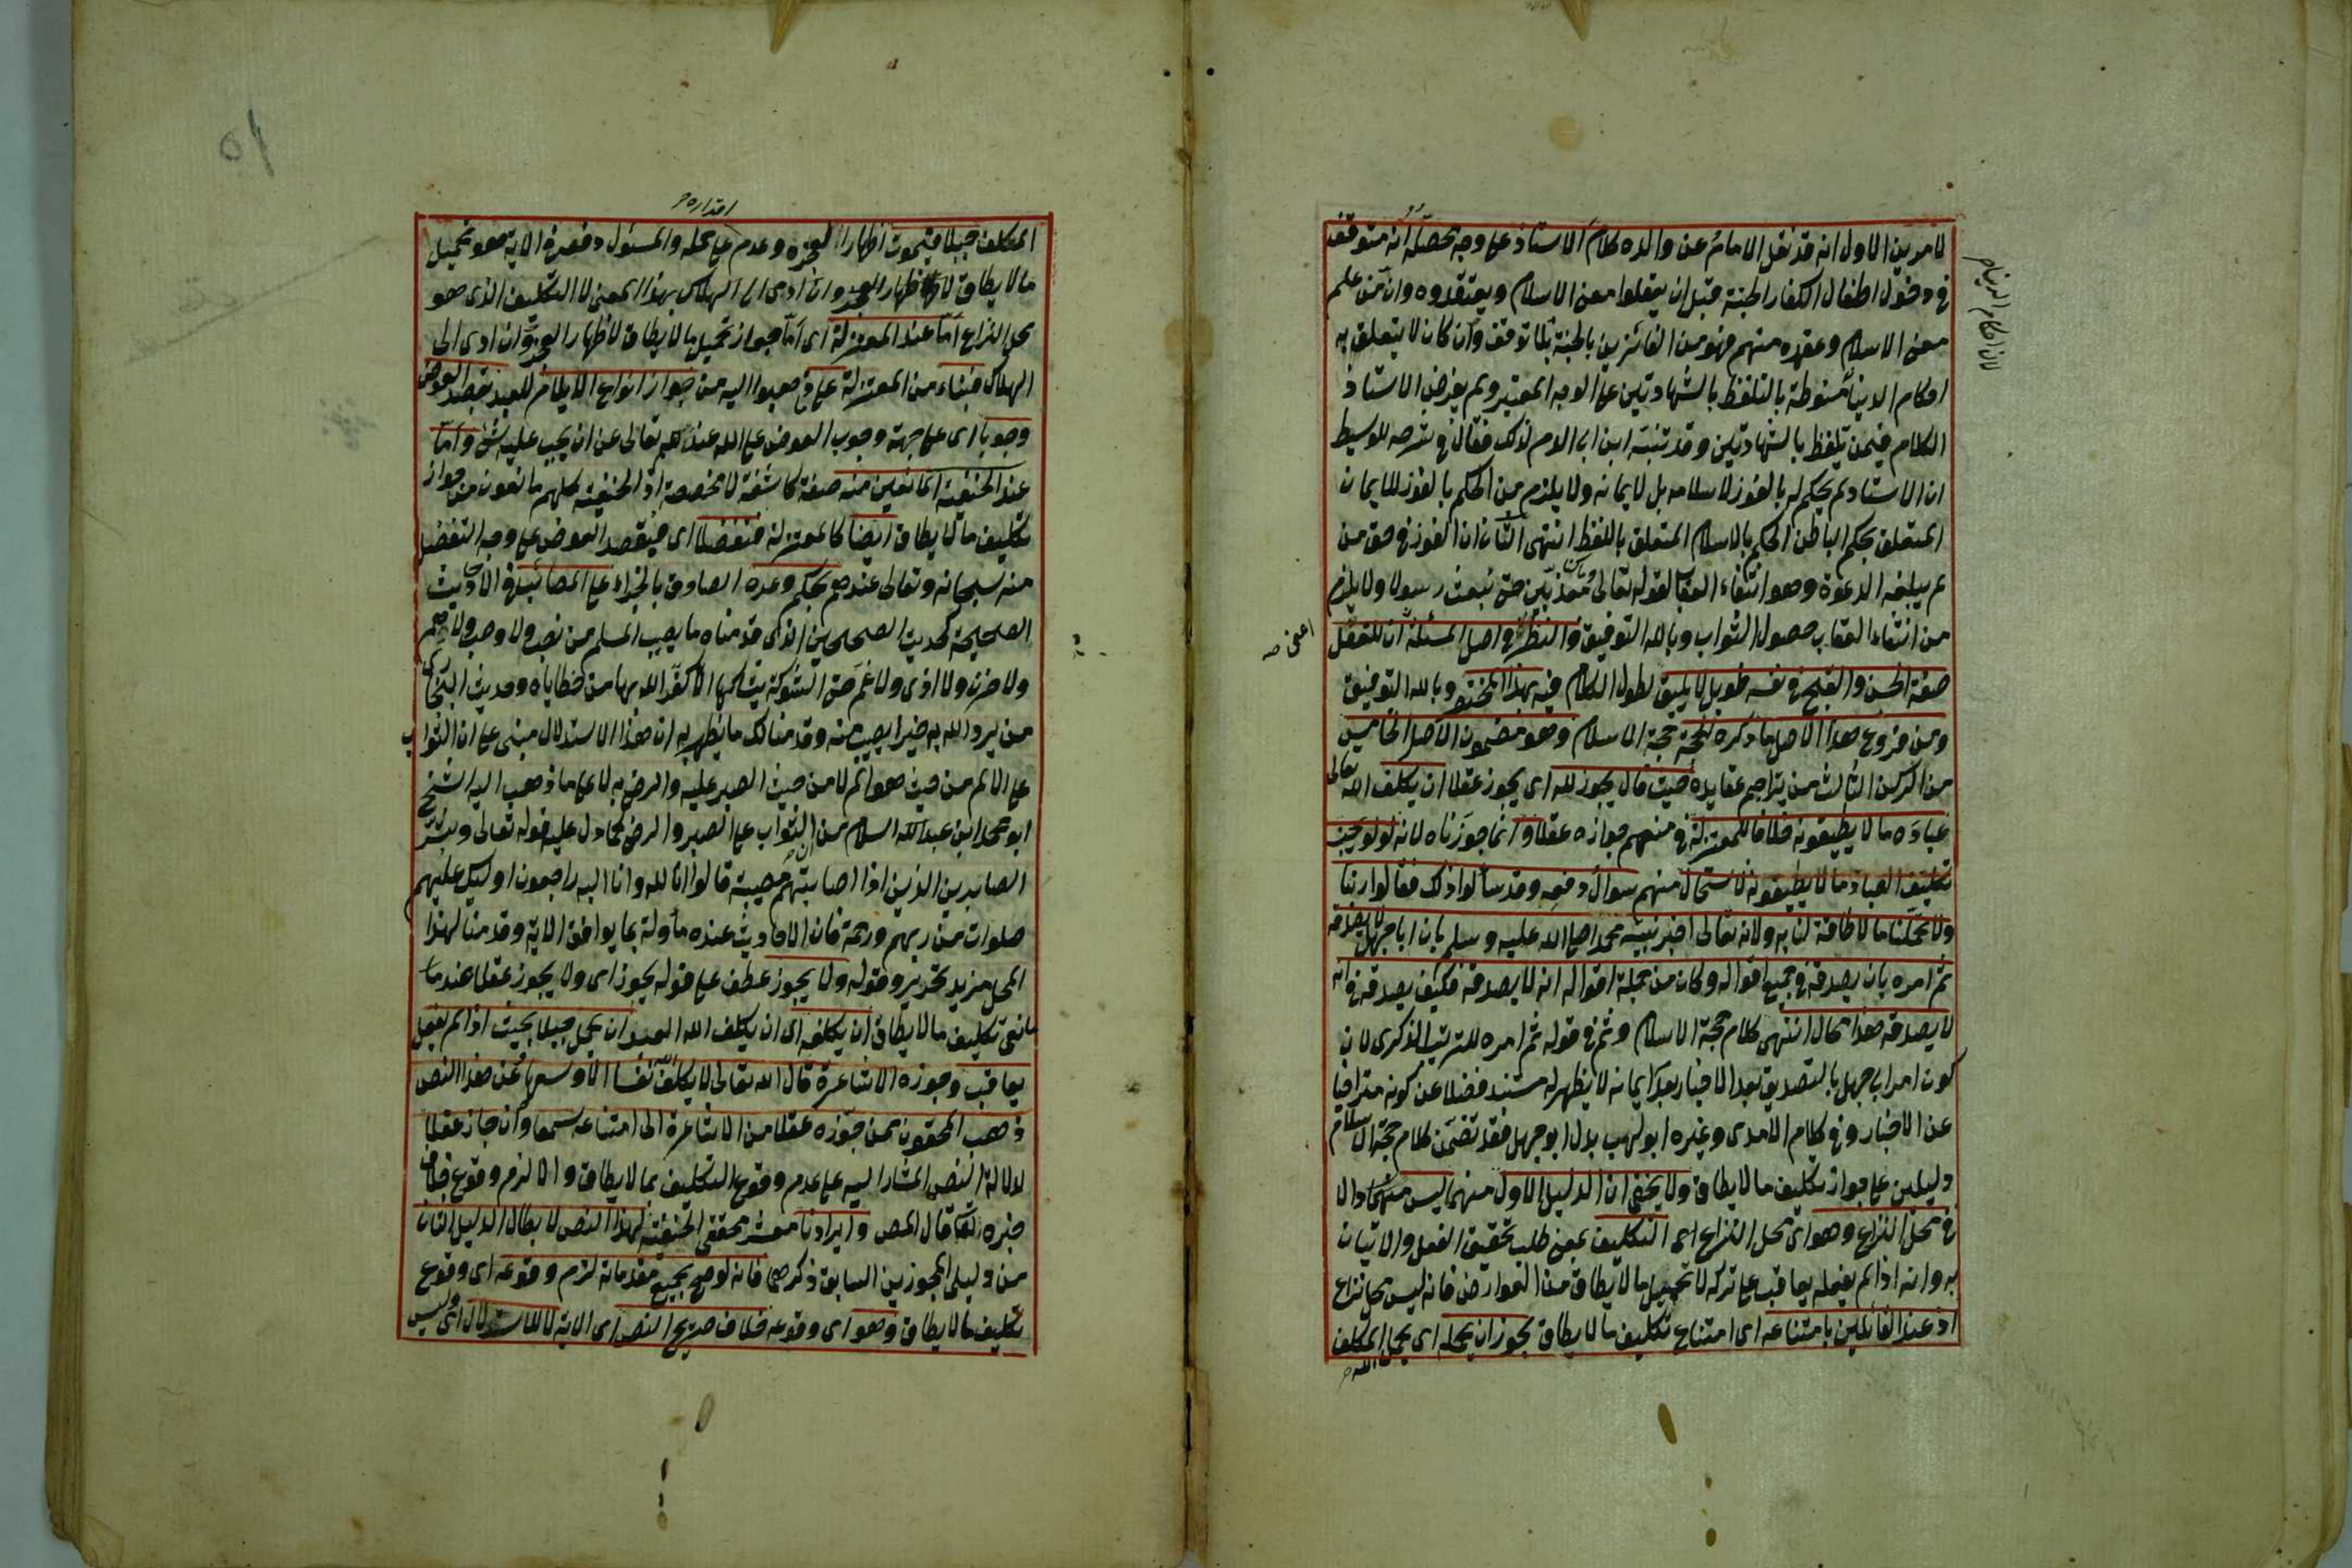 لامرين الاول انه قد نقل الامام عن والده كلام الاستاذ على وجه تحصله انه متوقف
في دخول اطفال الكفار الجنة قبل ان يعقلوا معنى الاسلام ويعتقدوه وان من علم
معنى الاسلام وعقده منهم فهو من الفائزين بالجنة بلا توقف وان كان لا يتعلق به
احكام الدنيا منوطة بالتلفظ بالشهادتين على الوجه المعتبر ولم يفرض الاستاذ
الكلام فيمن تلفظ بالشهادتين وقد تنبه ابن ابي الدم لذلك فقال في شرحه للوسيط
ان الاستاد لم يحكم له بالفوز لاسلامه بل لايمانه ولا يلزم من الحكم بالفوز للايمان
المتعلق بحكم الباطن الحكم بالاسلام المتعلق باللفظ انتهى الثاني ان الفوز في حق من
لم يبلغه الدعوة وهو انتفاء العقاب لقوله تعالى وما كنا معذبين حتى نبعث رسولا ولا يلزم
من انتفاء العقاب حصول الثواب وبالله التوفيق والنظر في اصل المسئلة ان للفعل
صفة الحسن والقبح في نفسه طويل لا يليق لطول الكلام فيه بهذا المختصر وبالله التوفيق
ومن فروع هذا الاصل ما ذكره الحجة حجة الاسلام وهو مضمون الاصل الخامس
من الركن الثالث من تراجم عقايده حيث قال يجوز لله اى يجوز عقلا ان يكلف الله تعالى
عباده ما لا يطيقونه خلافا للمعتزلة في منعهم جوازه عقلا وانما جوزناه لانه لو لم يجز
تكليف العباد ما لا يطيقونه لاستحال منهم سوال دفعه وقد سألوا ذلك فقالوا ربنا
ولا تحملنا ما لا طاقة لنا به ولانه تعالى اخبر نبيه محمدا صلى الله عليه وسلم بان ابا جهل لا يصدقه
ثم امره بان يصدقه في جميع اقواله وكان من جملة اقواله انه لا يصدقه فكيف يصدقه في انه
لا يصدقه هذا محال انتهى كلام حجة الاسلام وثم في قوله ثم امره للترتيب الذكرى لان
كون امر ابى جهل بالتصديق بعد الاخبار بعدم ايمانه لا يظهر له مستند فضلا عن كونه متراخيا
عن الاخبار وفي كلام الامدى وغيره ابو لهب بدل ابو جهل فقد تضمن كلام حجة الاسلام
دليلين على جواز تكليف ما لا يطاق ولا يخفى ان الدليل الاول منهما ليس منتهيا دالا
في محل النزاع وهو اى محل النزاع اى التكليف بمعنى طلب تحقيق الفعل والاتيان
به وانه اذا لم يفعله يعاقب على تركه لا تحميل ما لا يطاق من العوارض فانه ليس محل نزاع
اذ عند القائلين بامتناعه اى امتناع تكليف ما لا يطاق يجوز ان يحمله اى يحمل الله المكلف
لان احكام الدنيا م
اعنى صح
اقداره م
المكلف جبلا فيموت اظهارا لعجزه وعدم على حمله والمسئول دفعه في الاية هو تحميل
ما لا يطاق لاظهار العجز وان ادى الى الهلاك بهذا المعنى لا التكليف الذى هو
محل النزاع اما عند المعتزلة اى اما جواز تحميل ما لا يطاق لاظهار العجز وان ادى الى
الهلاك فبناء من المعتزلة على ما ذهبوا اليه من جواز انواع الايلام للعبد بقصد العوض
وجوبا اى على جهة وجوب العوض على الله عندهم تعالى عن ان يجب عليه شئ واما
عند الحنفية المانعين منه صفة كاشفة لا مخصصة اذ الحنفية كلهم مانعون من جواز
تكليف ما لا يطاق ايضا كالمعتزلة فتفضلا اى فيقصد العوض على وجه التفضل
منه سبحانه وتعالى عندهم بحكم وعده الصادق بالجزاء على المصائب في الاحاديث
الصحيحة كحديث الصحيحين الذى قدمناه ما يصيب المسلم من نصب ولا وصب ولا هم
ولا حزن ولا اذى ولا غم حتى الشوكة يشاكها الا كفر الله بها من خطاياه وحديث البخارى
من يرد الله به خيرا يصب منه وقدمنا لك ما يظهر به ان هذا الاستدلال مبنى على ان الثواب
على الالم من حيث هو الم لا من حيث الصبر عليه والرضى به لا على ما ذهب اليه الشيخ
ابو محمد ابن عبد السلام من ان الثواب على الصبر والرضى كما دل عليه قوله تعالى وبشر
الصابرين الذين اذا اصابتهم مصيبة قالوا انا لله وانا اليه راجعون اوليك عليهم
صلوات من ربهم ورحمة فان الاحاديث عنده مأولة بما يوافق الاية وقدمنا لهذا
المحل مزيد تحرير وقوله ولا يجوز عطف على قوله يجوز اى ولا يجوز عقلا عند
مانعى تكليف ما لا يطاق ان يكلفه اى ان يكلف الله العبد ان يحمل جبلا بحيث اذا لم يفعل
يعاقب وجوزه الاشاعرة قال الله تعالى لا يكلف الله نفسا الا وسعها وعن هذا النص
ذهب المحققون ممن جوزه عقلا من الاشاعرة الى امتناعه سمعا وان جاز عقلا
لدلالة النص المشار اليه على عدم وقوع التكليف بما لا يطاق والا لزم وقوع خلاف
خبره تعالى قال المص وايرادنا معشر محققى الحنفية لهذا النص لابطال الدليل الثانى
من دليلى المجوزين السابق ذكرهما فانه لو صح بجميع مقدماته لزم وقوعه اى وقوع
تكليف ما لا يطاق وهو اى وقوعه خلاف صريح النص اى الاية لا للاستدلال اى وليس